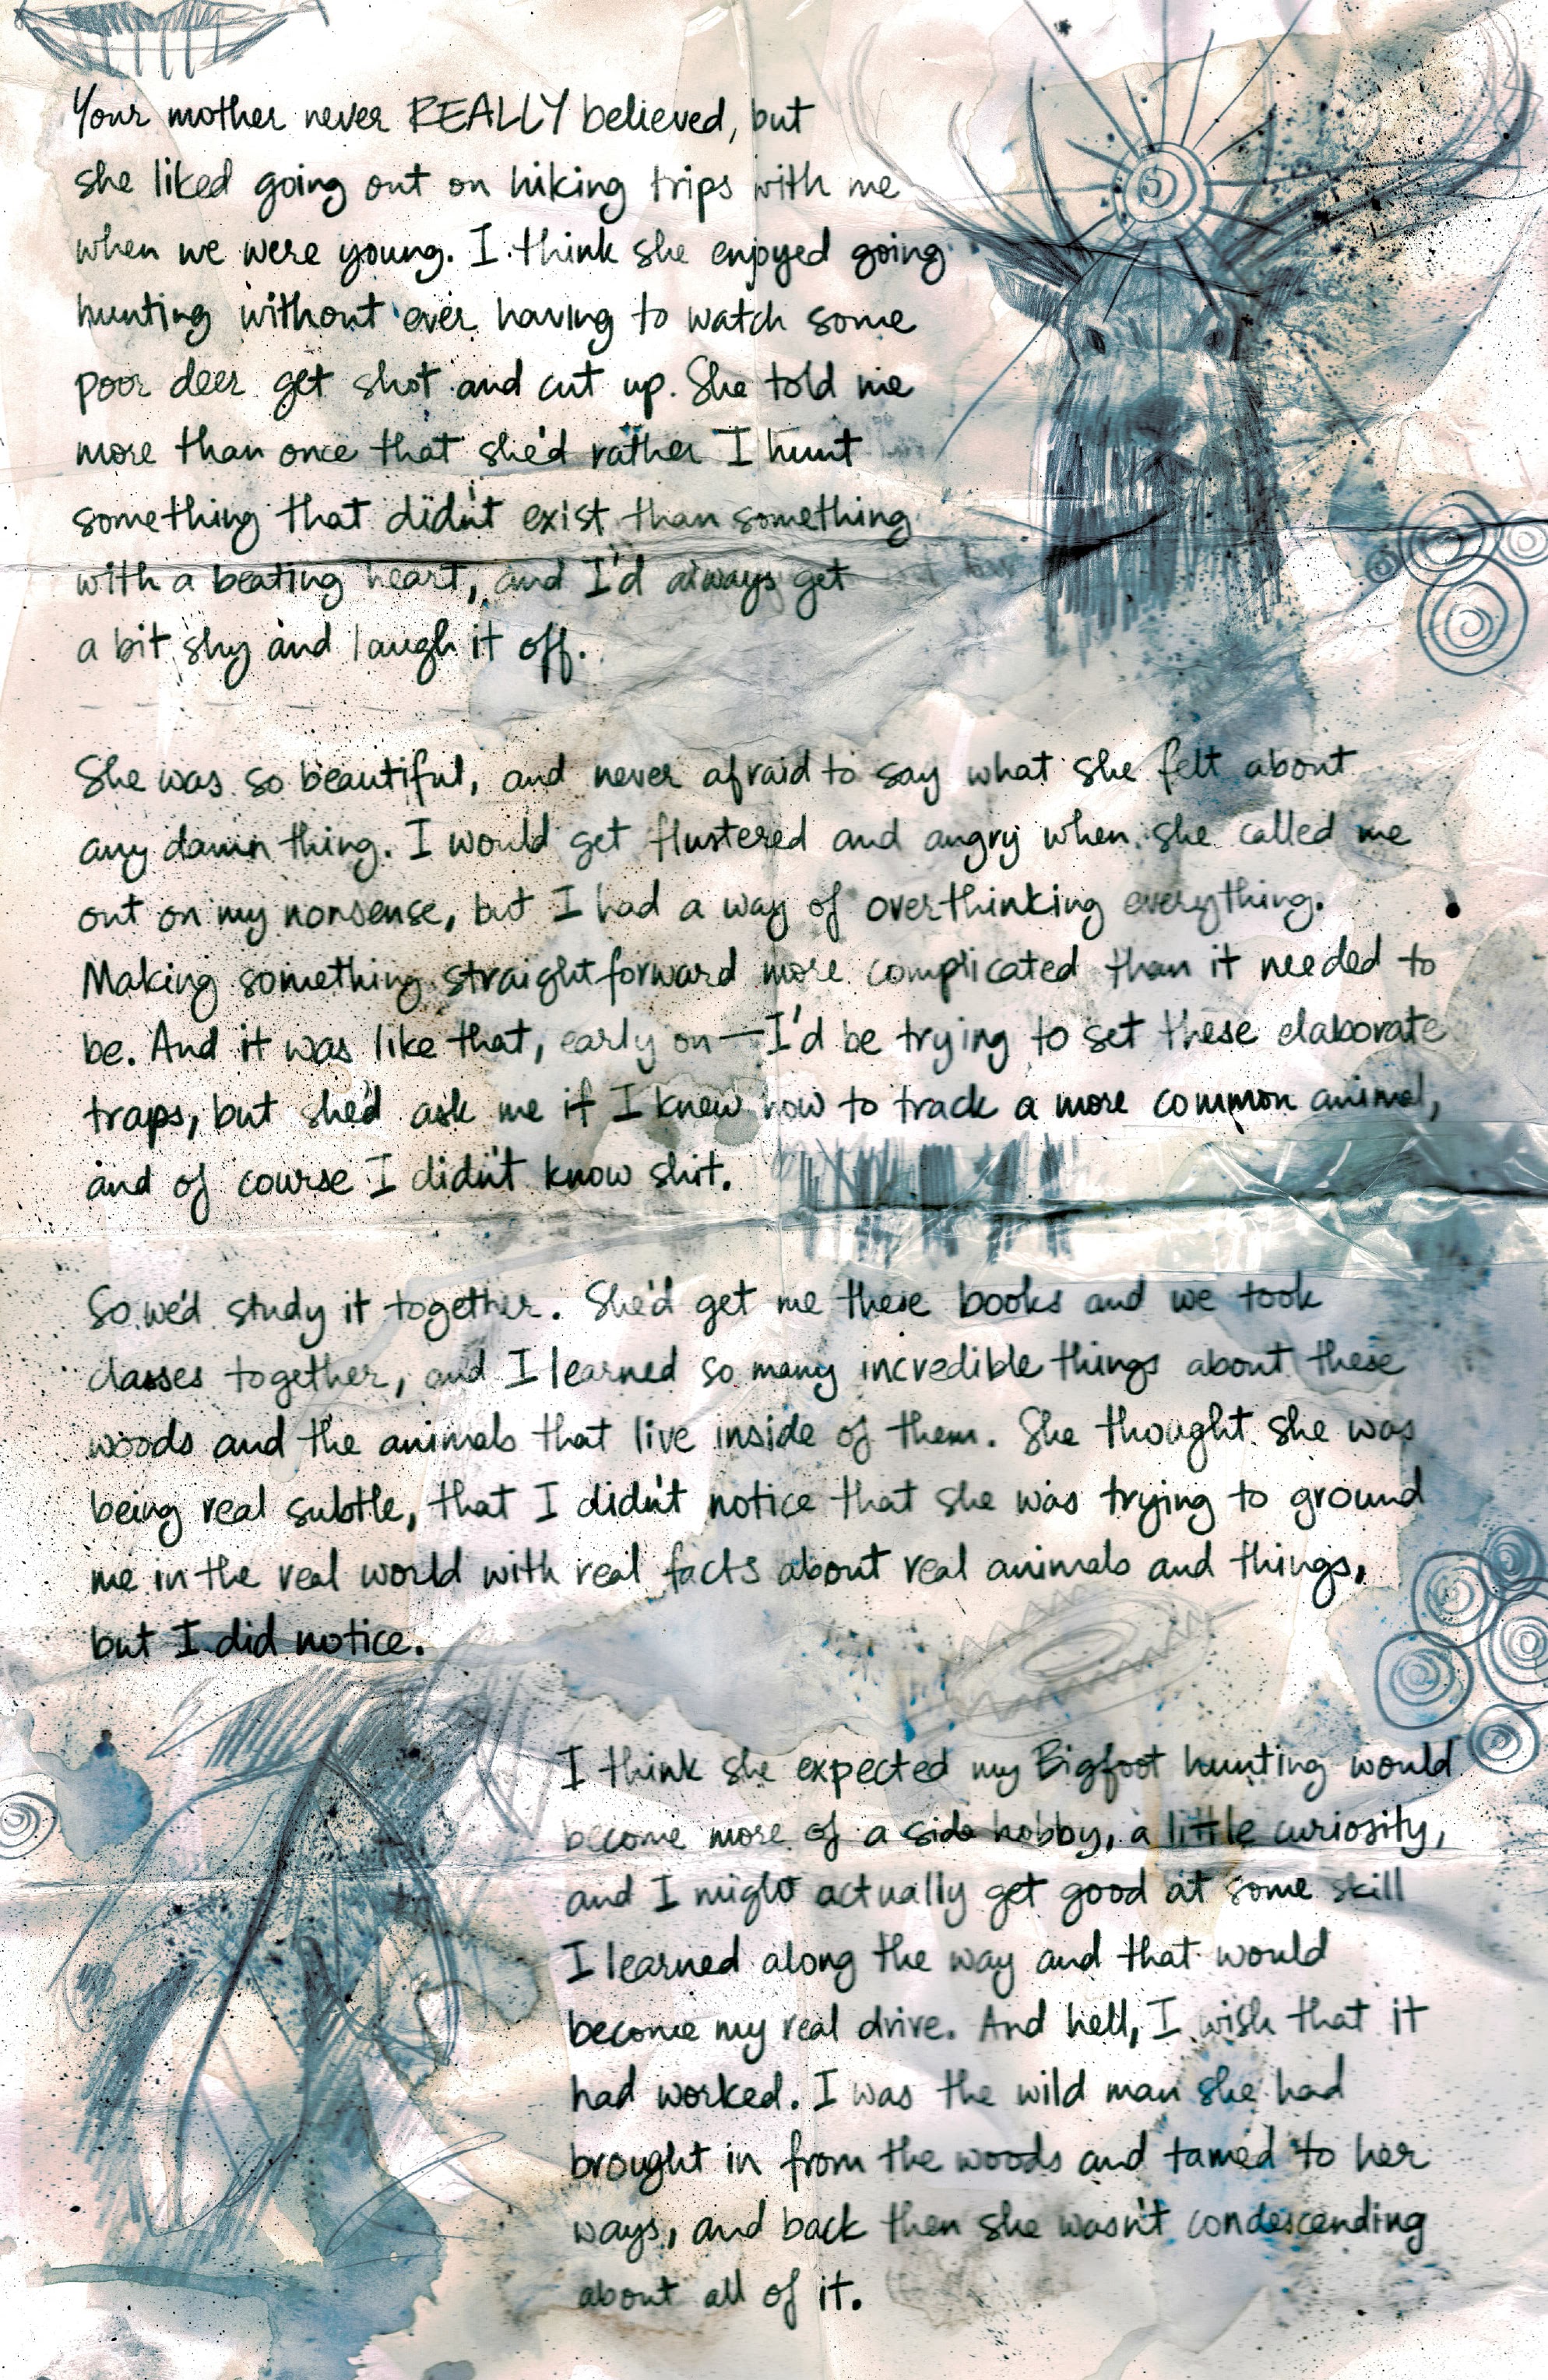 Your mother never REALLY believed, but
she liked going out on hiking trips with me
when we were young. I think she enjoyed going
hunting without ever having to watch some
poor deer get shot and cut up. She told me
more than once that she'd rather I hunt
something that didn't exist than something
with a beating heart, and I'd always get
a bit shy and laugh it off.
She was so beautiful, and never afraid to say what she felt about
any damn thing. I would get flustered and angry when she called me
out on my nonsense, but I had a way of overthinking everything.
Making something straightforward more complicated than it needed to
be. And it was like that, early on—I'd be trying to set these elaborate
traps, but she'd ask me if I knew how to track a more common animal,
and of course I didn't know shit.
So we'd study it together. She'd get me these books and we took
classes together, and I learned so many incredible things about these
woods and the animals that live inside of them. She thought she was
being real subtle, that I didn't notice that she was trying to ground
me in the real world with real facts about real animals and things,
but I did notice.
I think she expected my Bigfoot hunting would
become more of a side hobby, a little curiosity,
and I might actually get good at some skill
I learned along the way and that would
become my real drive. And hell, I wish that it
had worked. I was the wild man she had
brought in from the woods and tamed to her
ways, and back then she wasn't condescending
about all of it.